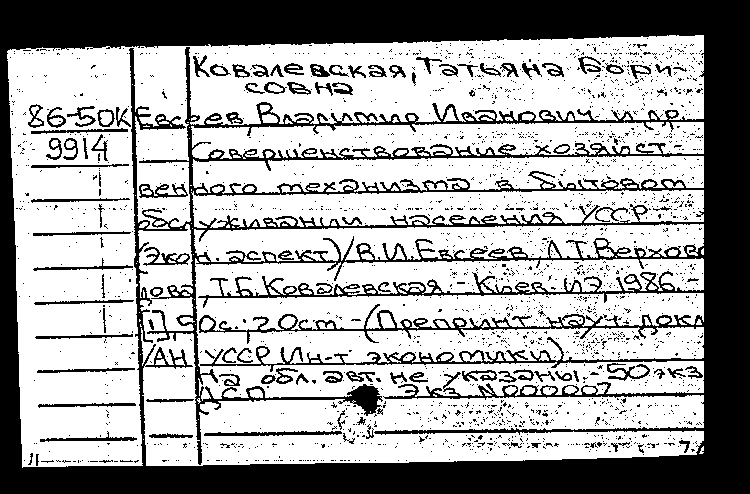 Ковалевская, Татьяна Бори-
совна
86-50К Евсеев, Владимир Иванович и др.
9914 Совершенствование хозяйст-
венного механизма в бытовом
обслуживании населения УССР.
(Экон. аспект)/В.И.Евсеев, Л.Т.Верхово
дова, Т.Б.Ковалевская. - Киев: ИЭ, 1986. -
[1], 50с.; 20см. - (Препринт науч. докл
/АН УССР, Ин-т экономики).
На обл. авт. не указаны. - 50 экз
ДСП Экз. N000007